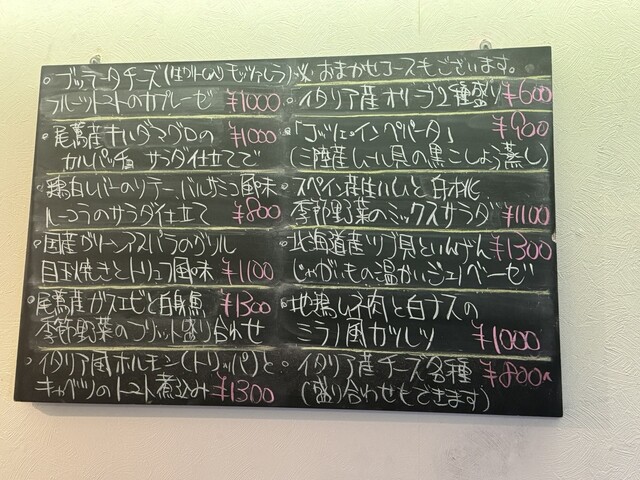 。ブッラータチーズ(生クリーム入りモッツァレラ)
フルーツトマトのカプレーゼ ¥1000
。尾鷲産キハダマグロの ¥1000
カルパッチョ サラダ仕立てで
。鶏白レバーのソテー、バルサミコ風味
ルーコラのサラダ仕立て ¥800
。国産グリーンアスパラのグリル
目玉焼きとトリュフ風味 ¥1100
。尾鷲産ガスエビと白身魚 ¥1300
季節野菜のフリット盛り合わせ
。イタリア風ホルモン(トリッパ)と
キャベツのトマト煮込み ¥1300
※おまかせコースもございます。
。イタリア産オリーブ2種盛り ¥600
。「コッツェ・インペパータ」 ¥900
(三陸産ムール貝の黒こしょう蒸し)
。スペイン産生ハムと白桃
季節野菜のミックスサラダ ¥1100
。北海道産ツブ貝といんげん ¥1300
じゃがいもの温かいジェノベーゼ
。地鶏ムネ肉と白ナスの
ミラノ風カツレツ ¥1000
。イタリア産チーズ各種 ¥800
(盛り合わせもできます)